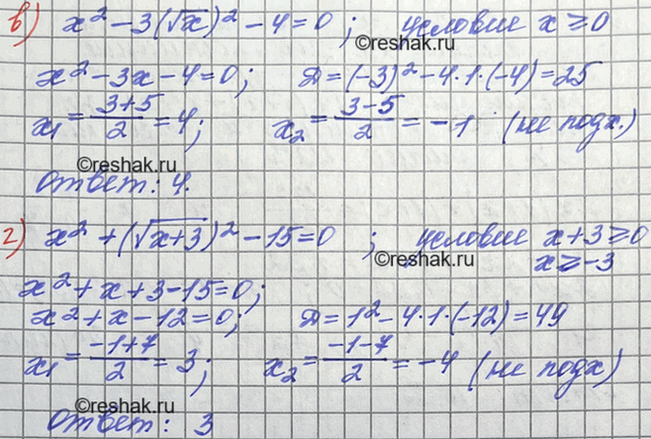 в) x² - 3(√x)² - 4 = 0 ; условие x ≥ 0
x² - 3x - 4 = 0; Д = (-3)² - 4·1·(-4) = 25
x₁ = (3+5)/2 = 4; x₂ = (3-5)/2 = -1 (не подх.)
©reshak.ru
ответ: 4.
г) x² + (√(x+3))² - 15 = 0 ; условие x+3 ≥ 0
©reshak.ru x ≥ -3
x² + x + 3 - 15 = 0;
x² + x - 12 = 0; Д = 1² - 4·1·(-12) = 49
x₁ = (-1+7)/2 = 3; x₂ = (-1-7)/2 = -4 (не подх)
©reshak.ru
ответ: 3